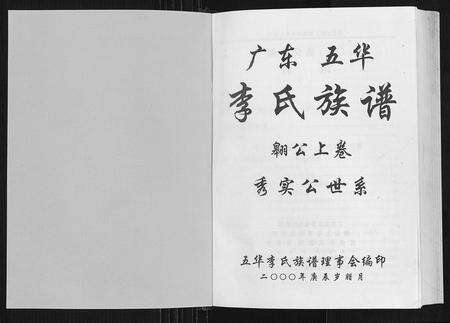 广东 五华
李氏族谱
翱公上卷
秀实公世系
五华李氏族谱理事会编印
二〇〇〇年庚辰岁腊月